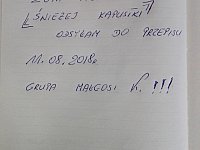 ŚWIEŻEJ KAPUSTKI
ODSYŁAM DO PRZEPISU
11.08.2018r
GRUPA MAŁGOSI K. !!!